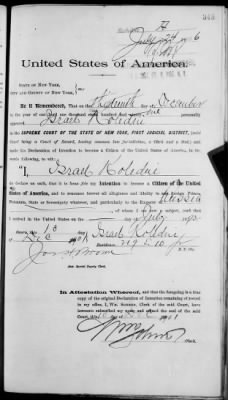 343
July 24 1906
United States of America.
STATE OF NEW YORK,
CITY AND COUNTY OF NEW YORK,
Be it Remembered, That on the Sixteenth day of December
in the year of our Lord one thousand nine hundred and one personally
appeared Israel Koledni in the
SUPREME COURT OF THE STATE OF NEW YORK, FIRST JUDICIAL DISTRICT, (said
Court being a Court of Record, having common law jurisdiction, a Clerk and a Seal) and
made his Declaration of Intention to become a Citizen of the United States of America, in
the words following, to wit:
"I, Israel Koledni
do declare on oath, that it is bona fide my Intention to become a Citizen of the United
States of America, and to renounce forever all allegiance and fidelity to any foreign Prince,
Potentate, State or Sovereignty whatever, and particularly to the Emperor Russia
of whom I am a subject, and that
I arrived in the United States on the day of July
Sworn, this 16
Dec 1901 Israel Koledni
Residence,
N. Y. City.
Special Deputy Clerk.
In Attestation Whereof, and that the foregoing is a true
copy of the original Declaration of Intention remaining of record
in my office, I, Wm. Sohmer, Clerk of the said Court, have
hereunto subscribed my name and affixed the seal of the said
Court, this 16 1901
Wm Sohmer
Clerk.